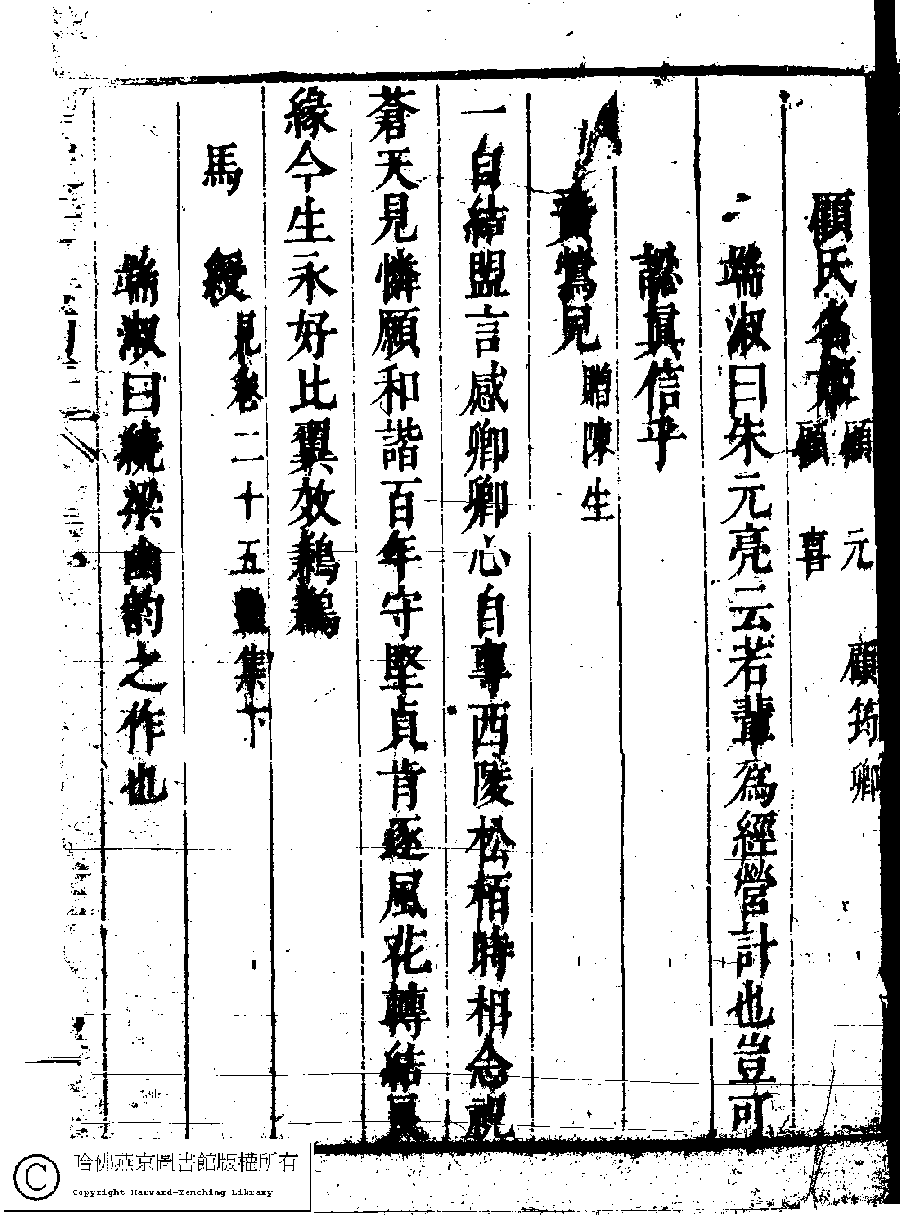 顧氏名姬 顧元 顧筠卿 顧喜
端淑曰朱元亮云若輩為經營計也豈可
認真信乎
鶯兒 贈陳生
一自結盟言感卿卿心自專西陵松栢時相念祝
蒼天見憐願和諧百年守堅貞肯逐風花轉結良
緣今生永好比翼效鶼鶼
馬綬 見卷二十五艷集下
端淑曰繞梁幽韵之作也
哈佛燕京圖書館版權所有
Copyright Harvard-Yenching Library